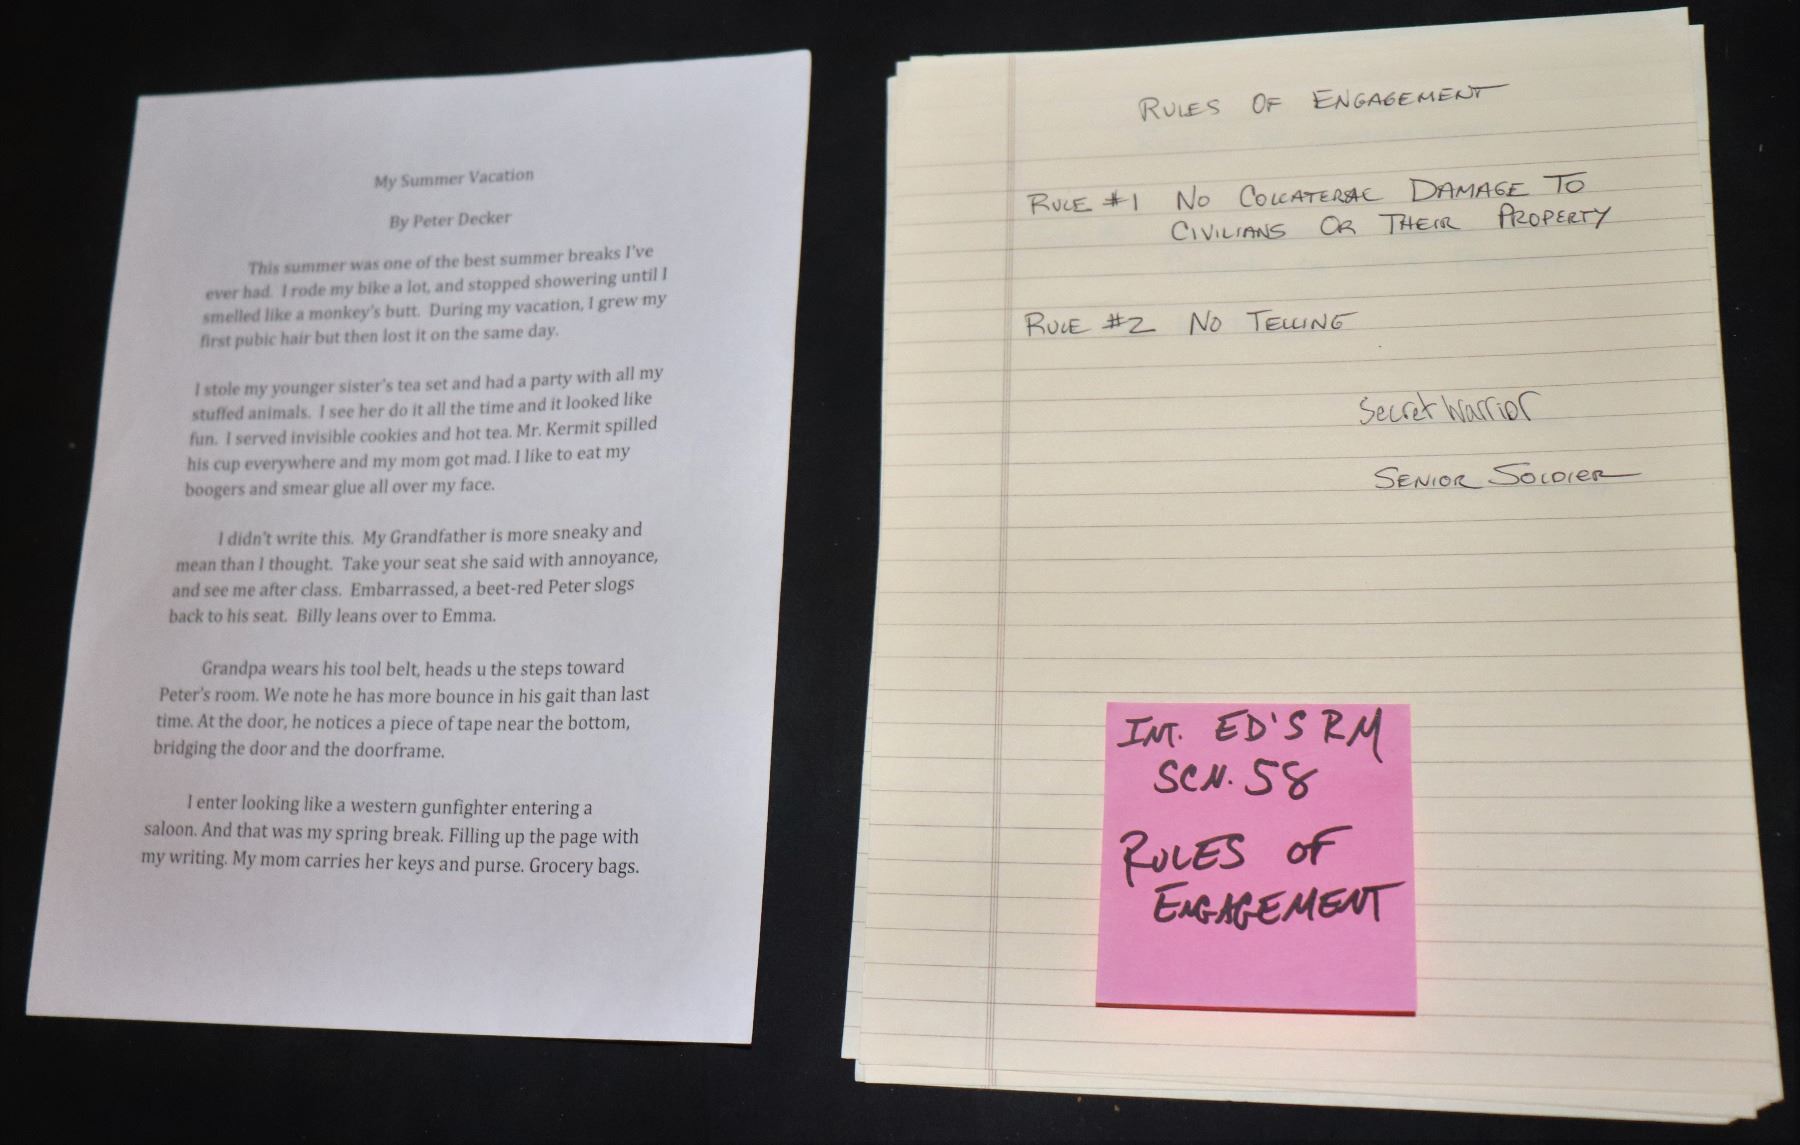 My Summer Vacation
By Peter Decker
This summer was one of the best summer breaks I've
ever had. I rode my bike a lot, and stopped showering until I
smelled like a monkey's butt. During my vacation, I grew my
first pubic hair but then lost it on the same day.
I stole my younger sister's tea set and had a party with all my
stuffed animals. I see her do it all the time and it looked like
fun. I served invisible cookies and hot tea. Mr. Kermit spilled
his cup everywhere and my mom got mad. I like to eat my
boogers and smear glue all over my face.
I didn't write this. My Grandfather is more sneaky and
mean than I thought. Take your seat she said with annoyance,
and see me after class. Embarrassed, a beet-red Peter slogs
back to his seat. Billy leans over to Emma.
Grandpa wears his tool belt, heads u the steps toward
Peter's room. We note he has more bounce in his gait than last
time. At the door, he notices a piece of tape near the bottom,
bridging the door and the doorframe.
I enter looking like a western gunfighter entering a
saloon. And that was my spring break. Filling up the page with
my writing. My mom carries her keys and purse. Grocery bags.
RULES OF ENGAGEMENT
RULE #1 NO COLLATERAL DAMAGE TO
CIVILIANS OR THEIR PROPERTY
RULE #2 NO TELLING
Secret Warrior
SENIOR SOLDIER
INT. ED'S RM
SCN. 58
RULES OF
ENGAGEMENT